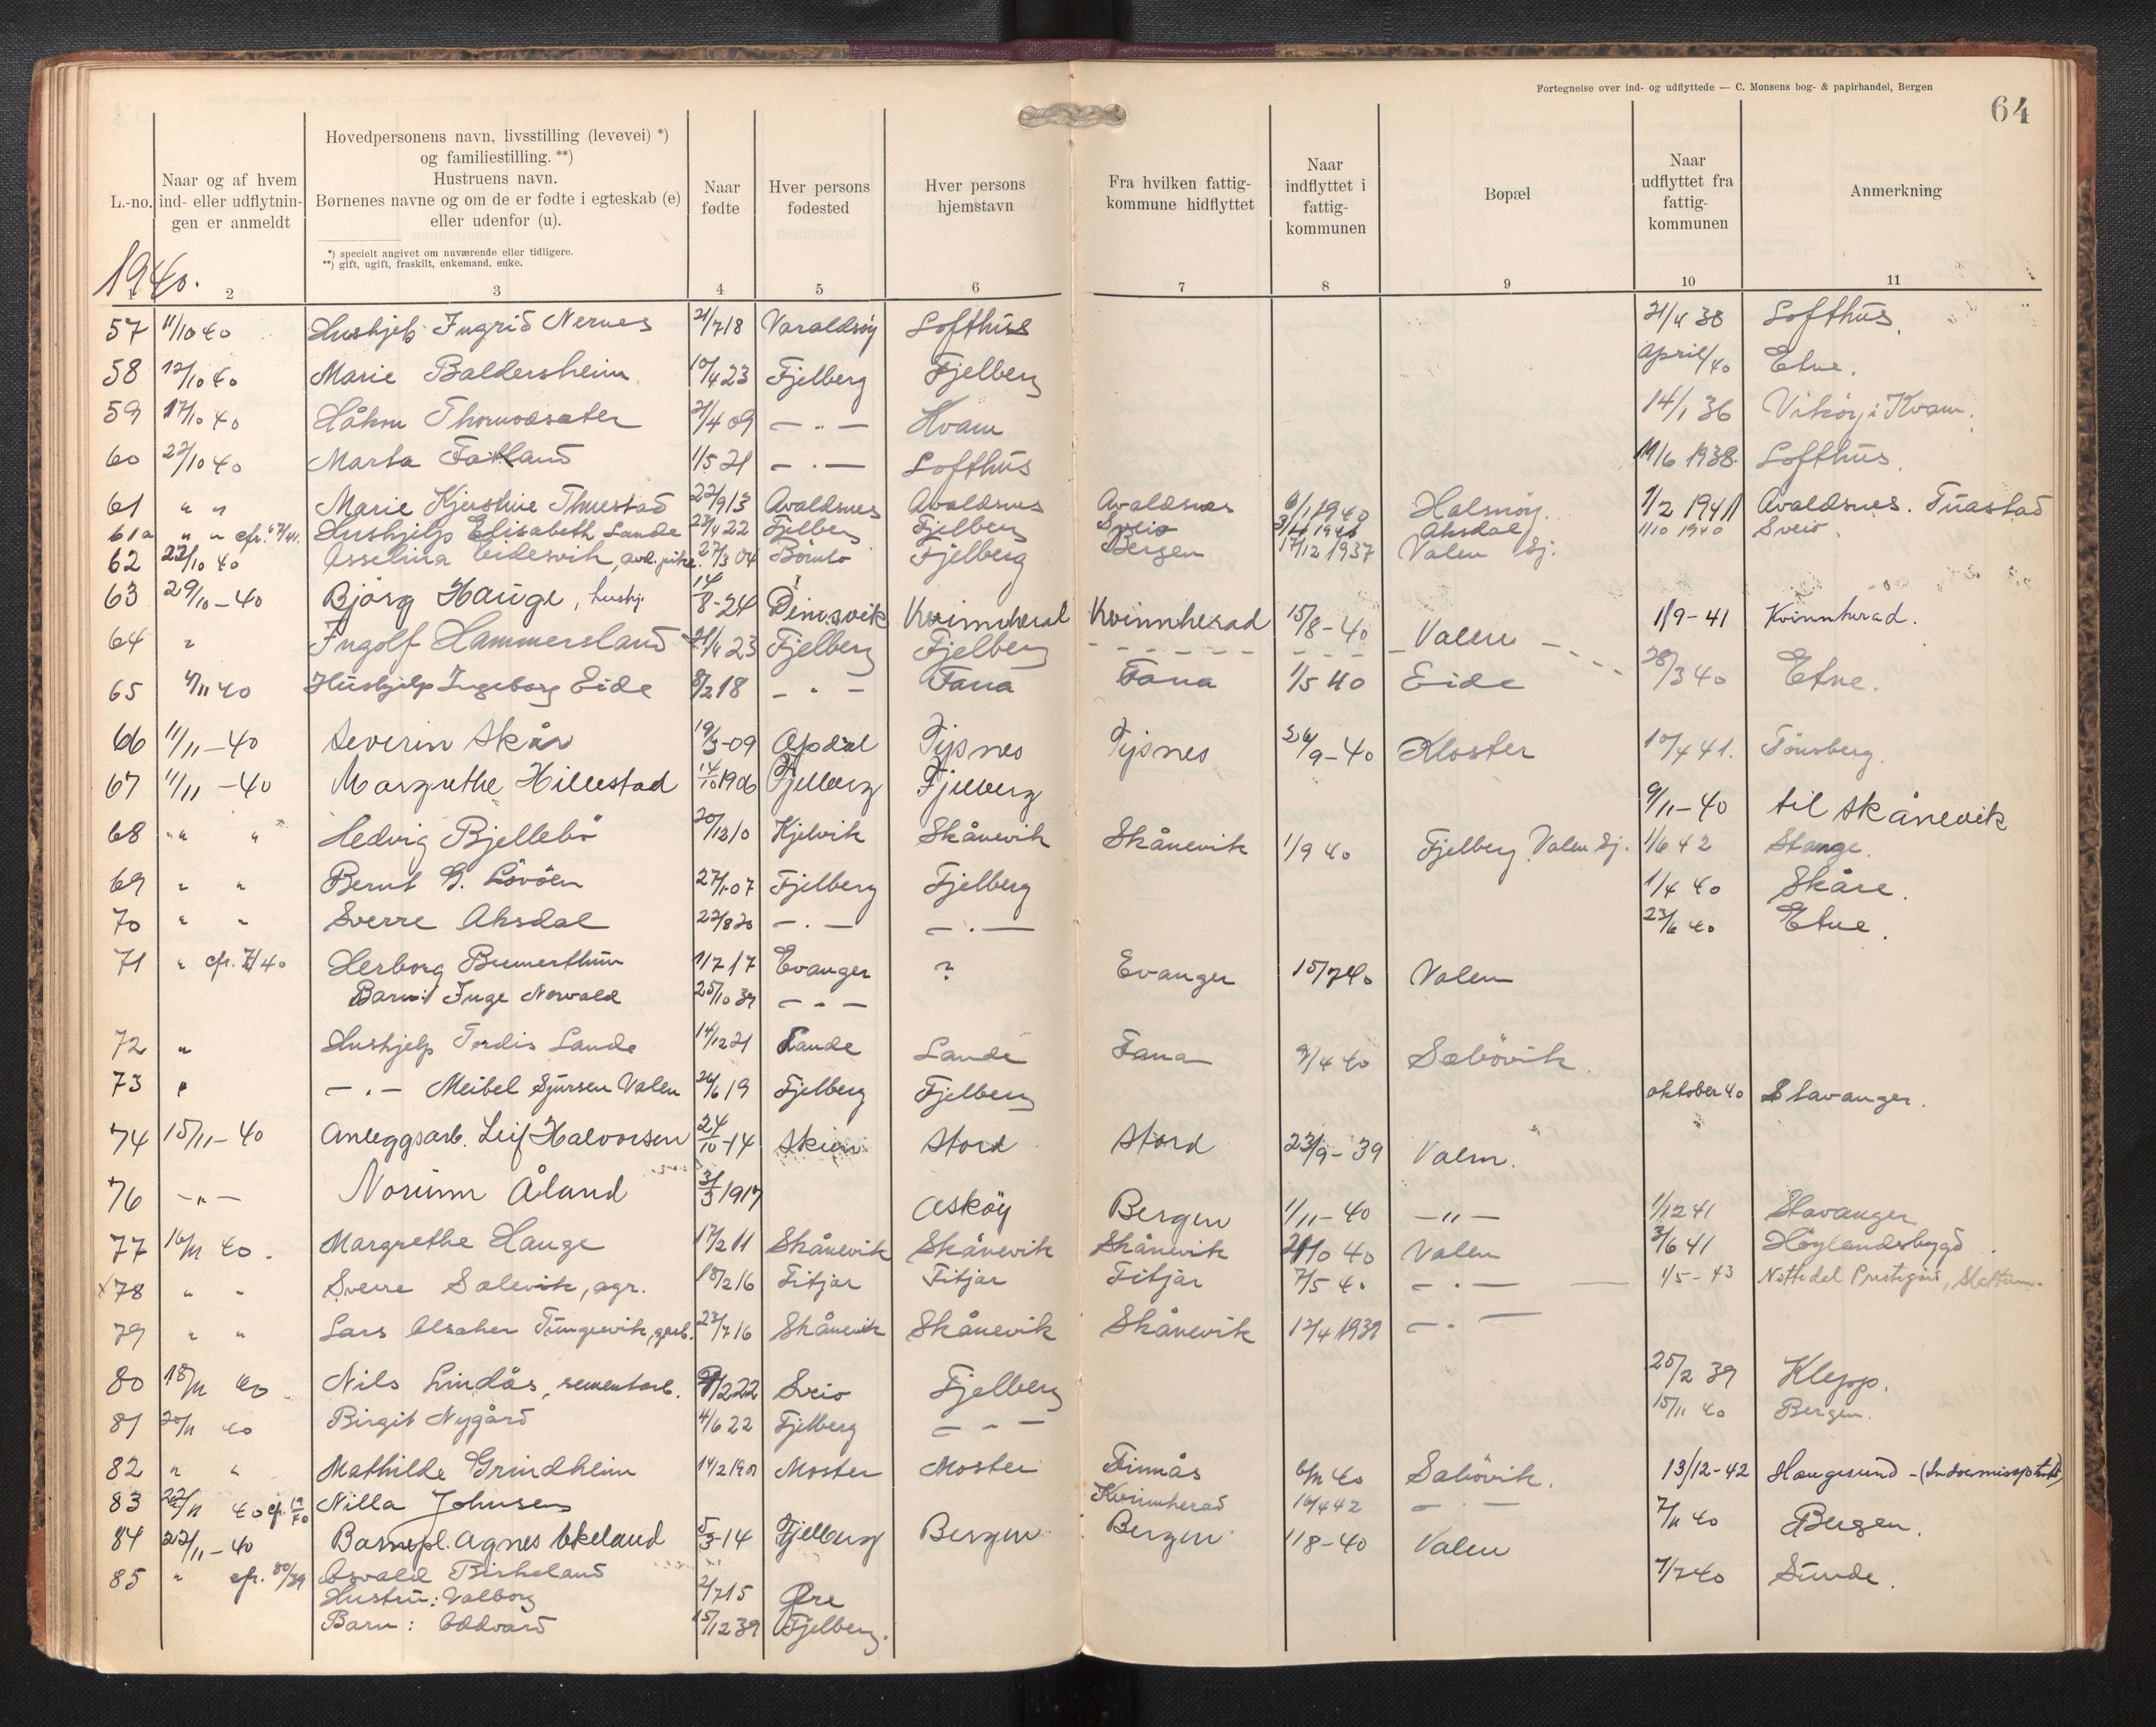 Fortegnelse over ind- og udflyttede — C. Monsens bog- & papirhandel, Bergen
64
L.-no.
Naar og af hvem ind- eller udflytningen er anmeldt
Hovedpersonens navn, livsstilling (levevei) *)
og familiestilling. **)
Hustruens navn.
Børnenes navne og om de er fødte i egteskab (e)
eller udenfor (u).
*) specielt angivet om nuværende eller tidligere.
**) gift, ugift, fraskilt, enkemand, enke.
Naar fødte
Hver persons fødested
Hver persons hjemstavn
Fra hvilken fattig-kommune hidflyttet
Naar indflyttet i fattig-kommunen
Bopæl
Naar udflyttet fra fattig-kommunen
Anmerkning
1940.
1 2 3 4 5 6 7 8 9 10 11
57 11/10 40 Hushjelp Ingrid Nernes 21/7 18 Varaldsöy Lofthus 21/4 38 Lofthus.
58 12/10 40 Marie Baldersheim 10/4 23 Fjelberg Fjelberg April/40 Etne.
59 17/10 40 Håkon 21/4 09 — " — Kvam 14/1 36 Viköy i Kvam.
60 22/10 40 Marta Fatland 1/5 21 — " — Lofthus 19/6 1938 Lofthus.
61 " " Marie Kjerstine Thuestad 22/9 13 Avaldsnes Avaldsnes Avaldsnes 6/1 1940 Halsnöy. 1/2 1941 Avaldsnes. Tuastad
61a " " cfr. 67/41. Hushjelp Elisabeth Lande 23/4 22 Fjelberg Fjelberg Sveio 3/4 1940 Aksdal 1/10 1940 Sveio.
62 22/10 40 Asselina Eidesvik, avd. pike 27/3 04 Bömlo Fjelberg Bergen 17/12 1937 Valen Sj.
63 29/10-40 Bjørg Hauge, hushj. 14/8-24 Dimsvik Kvinnherad Kvinnherad 15/8-40 Valen 1/9-41 Kvinnherad.
64 " Ingolf Hammersland 21/4 23 Fjelberg Fjelberg 28/3 40 Etne.
65 4/11 40 Hushjelp Ingeborg Eide 8/2 18 — " — Fana Fana 1/5 40 Eide
66 11/11-40 Severin Skår 19/3-09 Opdal Tysnes Tysnes 26/9-40 Kloster 10/4 41. Tönsberg.
67 11/11-40 Margrethe Hillestad 14/10 1906 Fjelberg Fjelberg 9/11-40 til Skånevik
68 " " Hedvig Bjellebö 20/12 10 Kjelvik Skånevik Skånevik 1/9 40 Fjelberg Valen Sj. 1/6 42 Stange.
69 " " Bernt G. Lövöen 27/1 07 Fjelberg Fjelberg 1/4 40 Skåre.
70 " " Sverre Aksdal 22/8 20 — " — — " — 23/6 40 Etne.
71 " cfr. 7/40 Herborg 1/7 17 Evanger ? Evanger 15/7 40 Valen
Barn: Inge Norvald 25/10 39 — " —
72 " Hushjelp Tordis Lande 14/12 21 Lande Lande Fana 9/4 40 Sæbövik.
73 " — " — Meibel Sjursen Valen 26/6 19 Fjelberg Fjelberg oktober 40 Stavanger.
74 15/11-40 Anleggsarb. Leif Halvorsen 24/10-14 Skien Stord Stord 23/9-39 Valen.
76 — " — Norunn Åland 31/3 1917 Asköy Bergen 1/11-40 — " — 1/12 41 Stavanger
77 16/11 40. Margrethe Hauge 17/2 11 Skånevik Skånevik Skånevik 21/10 40 Valen 3/6 41 Höylandsbygd.
x78 " " Sverre Salevik, agr. 18/2 16 Fitjar Fitjar Fitjar 7/5 40 — " — 1/5-43 Nittedal Prestegård,
79 " " Lars Tungesvik, 23/7 16 Skånevik Skånevik Skånevik 12/4 1939 — " —
80 18/11 40 Nils Lindås, sementarb. 9/12 22 Sveio Fjelberg 25/2 39 Klepp.
81 20/11 40 Birgit Nygård 4/6 22 Fjelberg — " — 15/11 40 Bergen.
82 " " Mathilde Grindheim 14/2 1901 Moster Moster Finnås 6/11 40 Sæbövik. 13/12-42 Haugesund -
83 22/11 40 cf. 19/40 Nilla Johnsen Kvinnherad 16/4 42 — " — 7/11 40 Bergen.
84 22/11-40 Barnepl. Agnes Økeland 5/3-14 Fjelberg Bergen Bergen 1/8-40 Valen
85 " cfr. 80/39 Osvald Birkeland 7/7 40 Sunde.
Hustru: Valborg 2/7 15 Øre
Barn: Oddvard 15/12 39 Fjelberg.